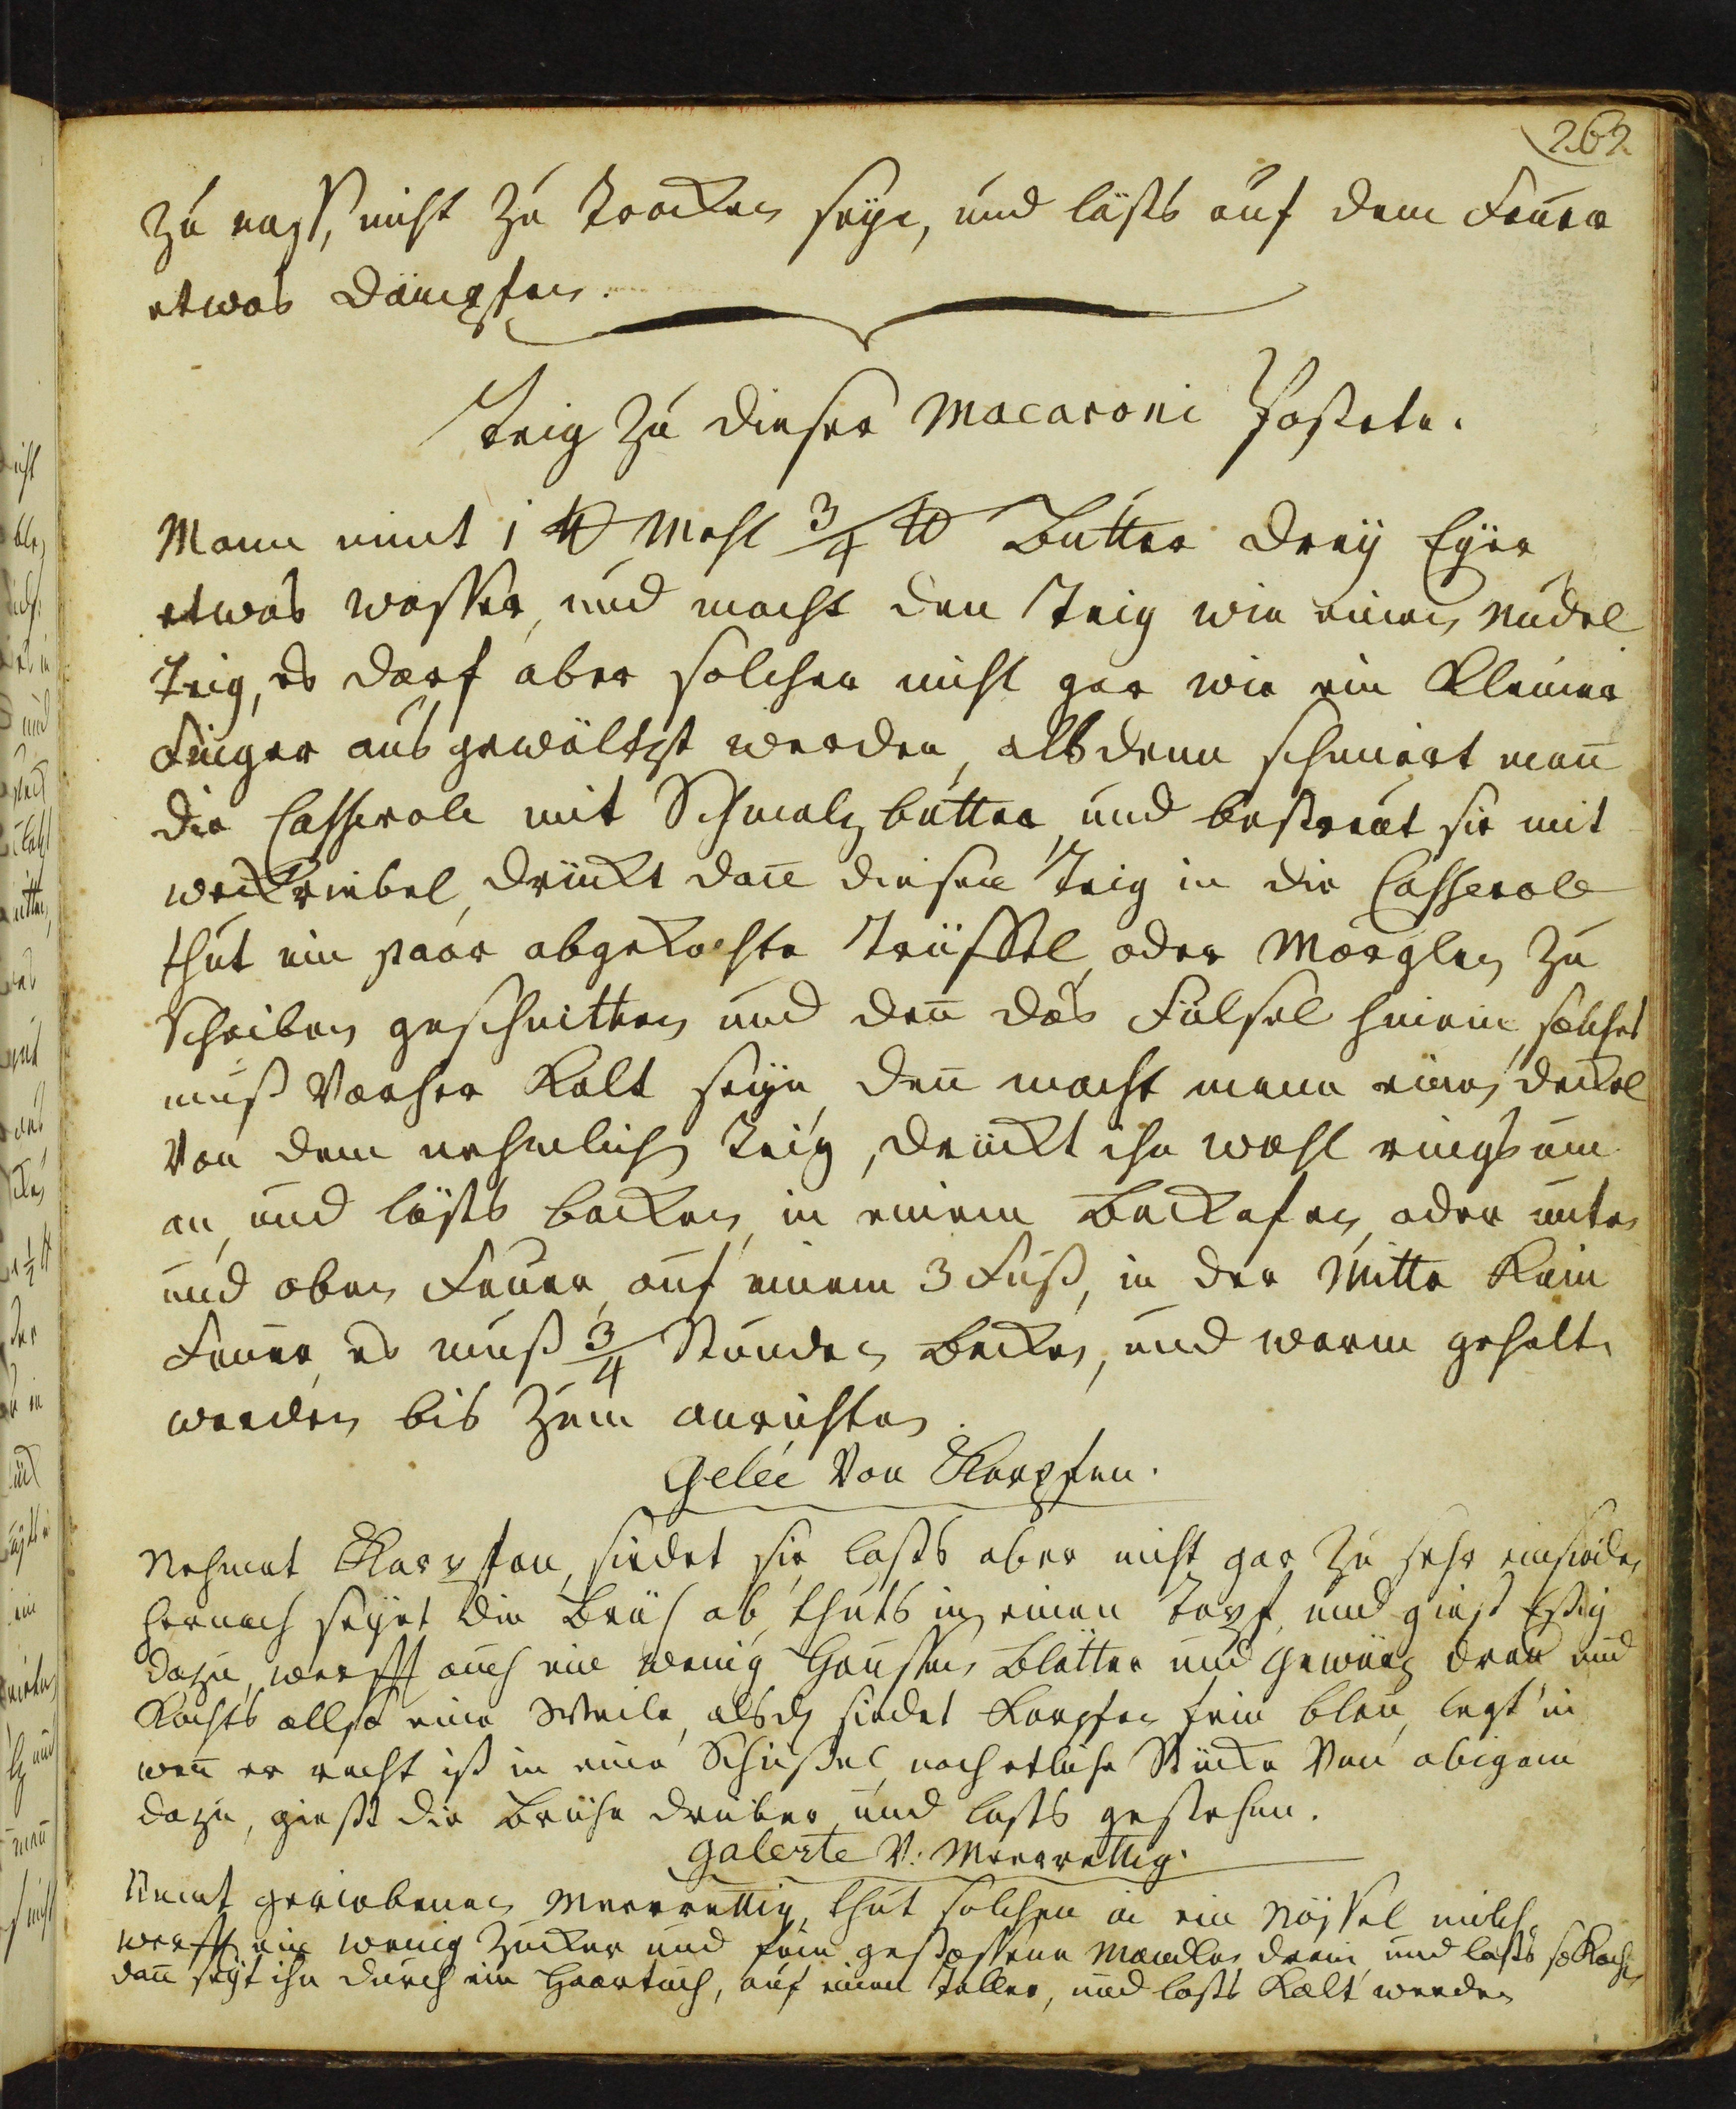 262
zu nass, nicht zu trocken seye, und lässts auf dem Feuer
etwas dämpfen.
Teig zu dieser Macaroni Pastete.
Mann nimt 1 ℔ Mehl 3/4 ℔ Butter dreÿ Eÿer
etwas wasser, und macht den Teig wie einen Nudel
Teig, es darf aber solcher nicht gar wie ein kleiner
Finger aus gewältzt werden, alsdenn schmiert man̄
die Casserole mit Schmalz butter und bestreut sie mit
weckriebel, drückt dan̄ diesen Teig in die Casserole
thut ein paar abgekochte Trüffel, oder Morglen zu
Scheiben geschnitten und den̄ das Fülsel hinein, solches
muß Vorher Kalt seyn, den̄ macht mann einen deckel
Von dem nehmlich Teig, drückt ihn wohl rings um
an, und lässts backen in einem Backofen, oder unten
und oben Feuer, auf einem 3 Fuß, in der Mitte Kein
Feuer, es muß 3/4 Stunden Backen, und warm gehalt.
werden bis Zum anrichten.
Gelée Von Karpfen.
Nehmet Karpfen, siedet sie, lasts aber nicht gar zu sehr einsieden
hernach seyhet die Brüh ab, thuts in einen Topf, und giest Essig
dazu, werfft auch ein wenig Haussen Blätter und Gewürz dran und
Kochts allso eine Weile, alsdn siedet Karpfen fein blau, legt in
wen̄ er recht ist in eine Schüssel, noch etliche Stücke Von obigem
dazu, giest die Brühe drüber, und lasts gestehen.
Galerte V. Meerrettig.
Nemt geriebenen Meerrettig, thut solchen in ein Nössel milch,
werfft ein wenig Zucker und fein gestossene Mandlen drein und lasts so Kochen
dan̄ seyt ihn durch ein Haartuch, auf einen Teller, und lasts Kalt werden